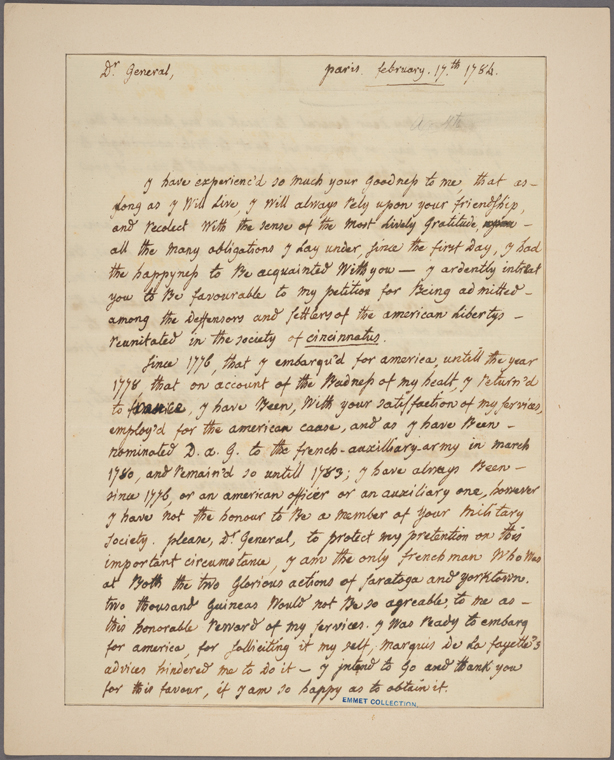 Dr General,
paris february. 17.th 1784.
y have experienc'd so much your Goodness to me, that as-
long as y Will Live, y Will always Rely upon your friendship,
and recolect With the sense of the Most Lively Gratitude -
all the Many obligations y Lay under, since the first Day, y had
the happyness to Be acquainted With you — y ardently intreat
you to Be favourable to my petition for Being admitted -
among the Deffensors and settlers of the american Libertys -
reunitated in the society of cincinnatus.
Since 1776, that y embarqu'd for america, untill the year
1778, that on account of the Badness of my healt, y return'd
to france, y have Been, With your satisfaction of my services,
employ'd for the american cause, and as y have Been -
nominated D. a. G. to the french-auxilliary-army in march
1780, and remain'd so untill 1783; y have always Been -
since 1776, or an american officer or an auxiliary one, however
y have not the honour to Be a member of your Military
Society. please, Dr General, to protect my pretention on this
important circumstance, y am the only frenchman Who Was
at Both the two Glorious actions of Saratoga and yorktown.
two thousand Guineas Would not Be so agreable, to me as -
this honorable Reward of my services. y Was ready to embarq
for america, for solliciting it my self, Marquis De La fayette's
advices hindered me to do it — y intend to Go and thank you
for this favour, if y am so happy as to obtain it.
EMMET COLLECTION.